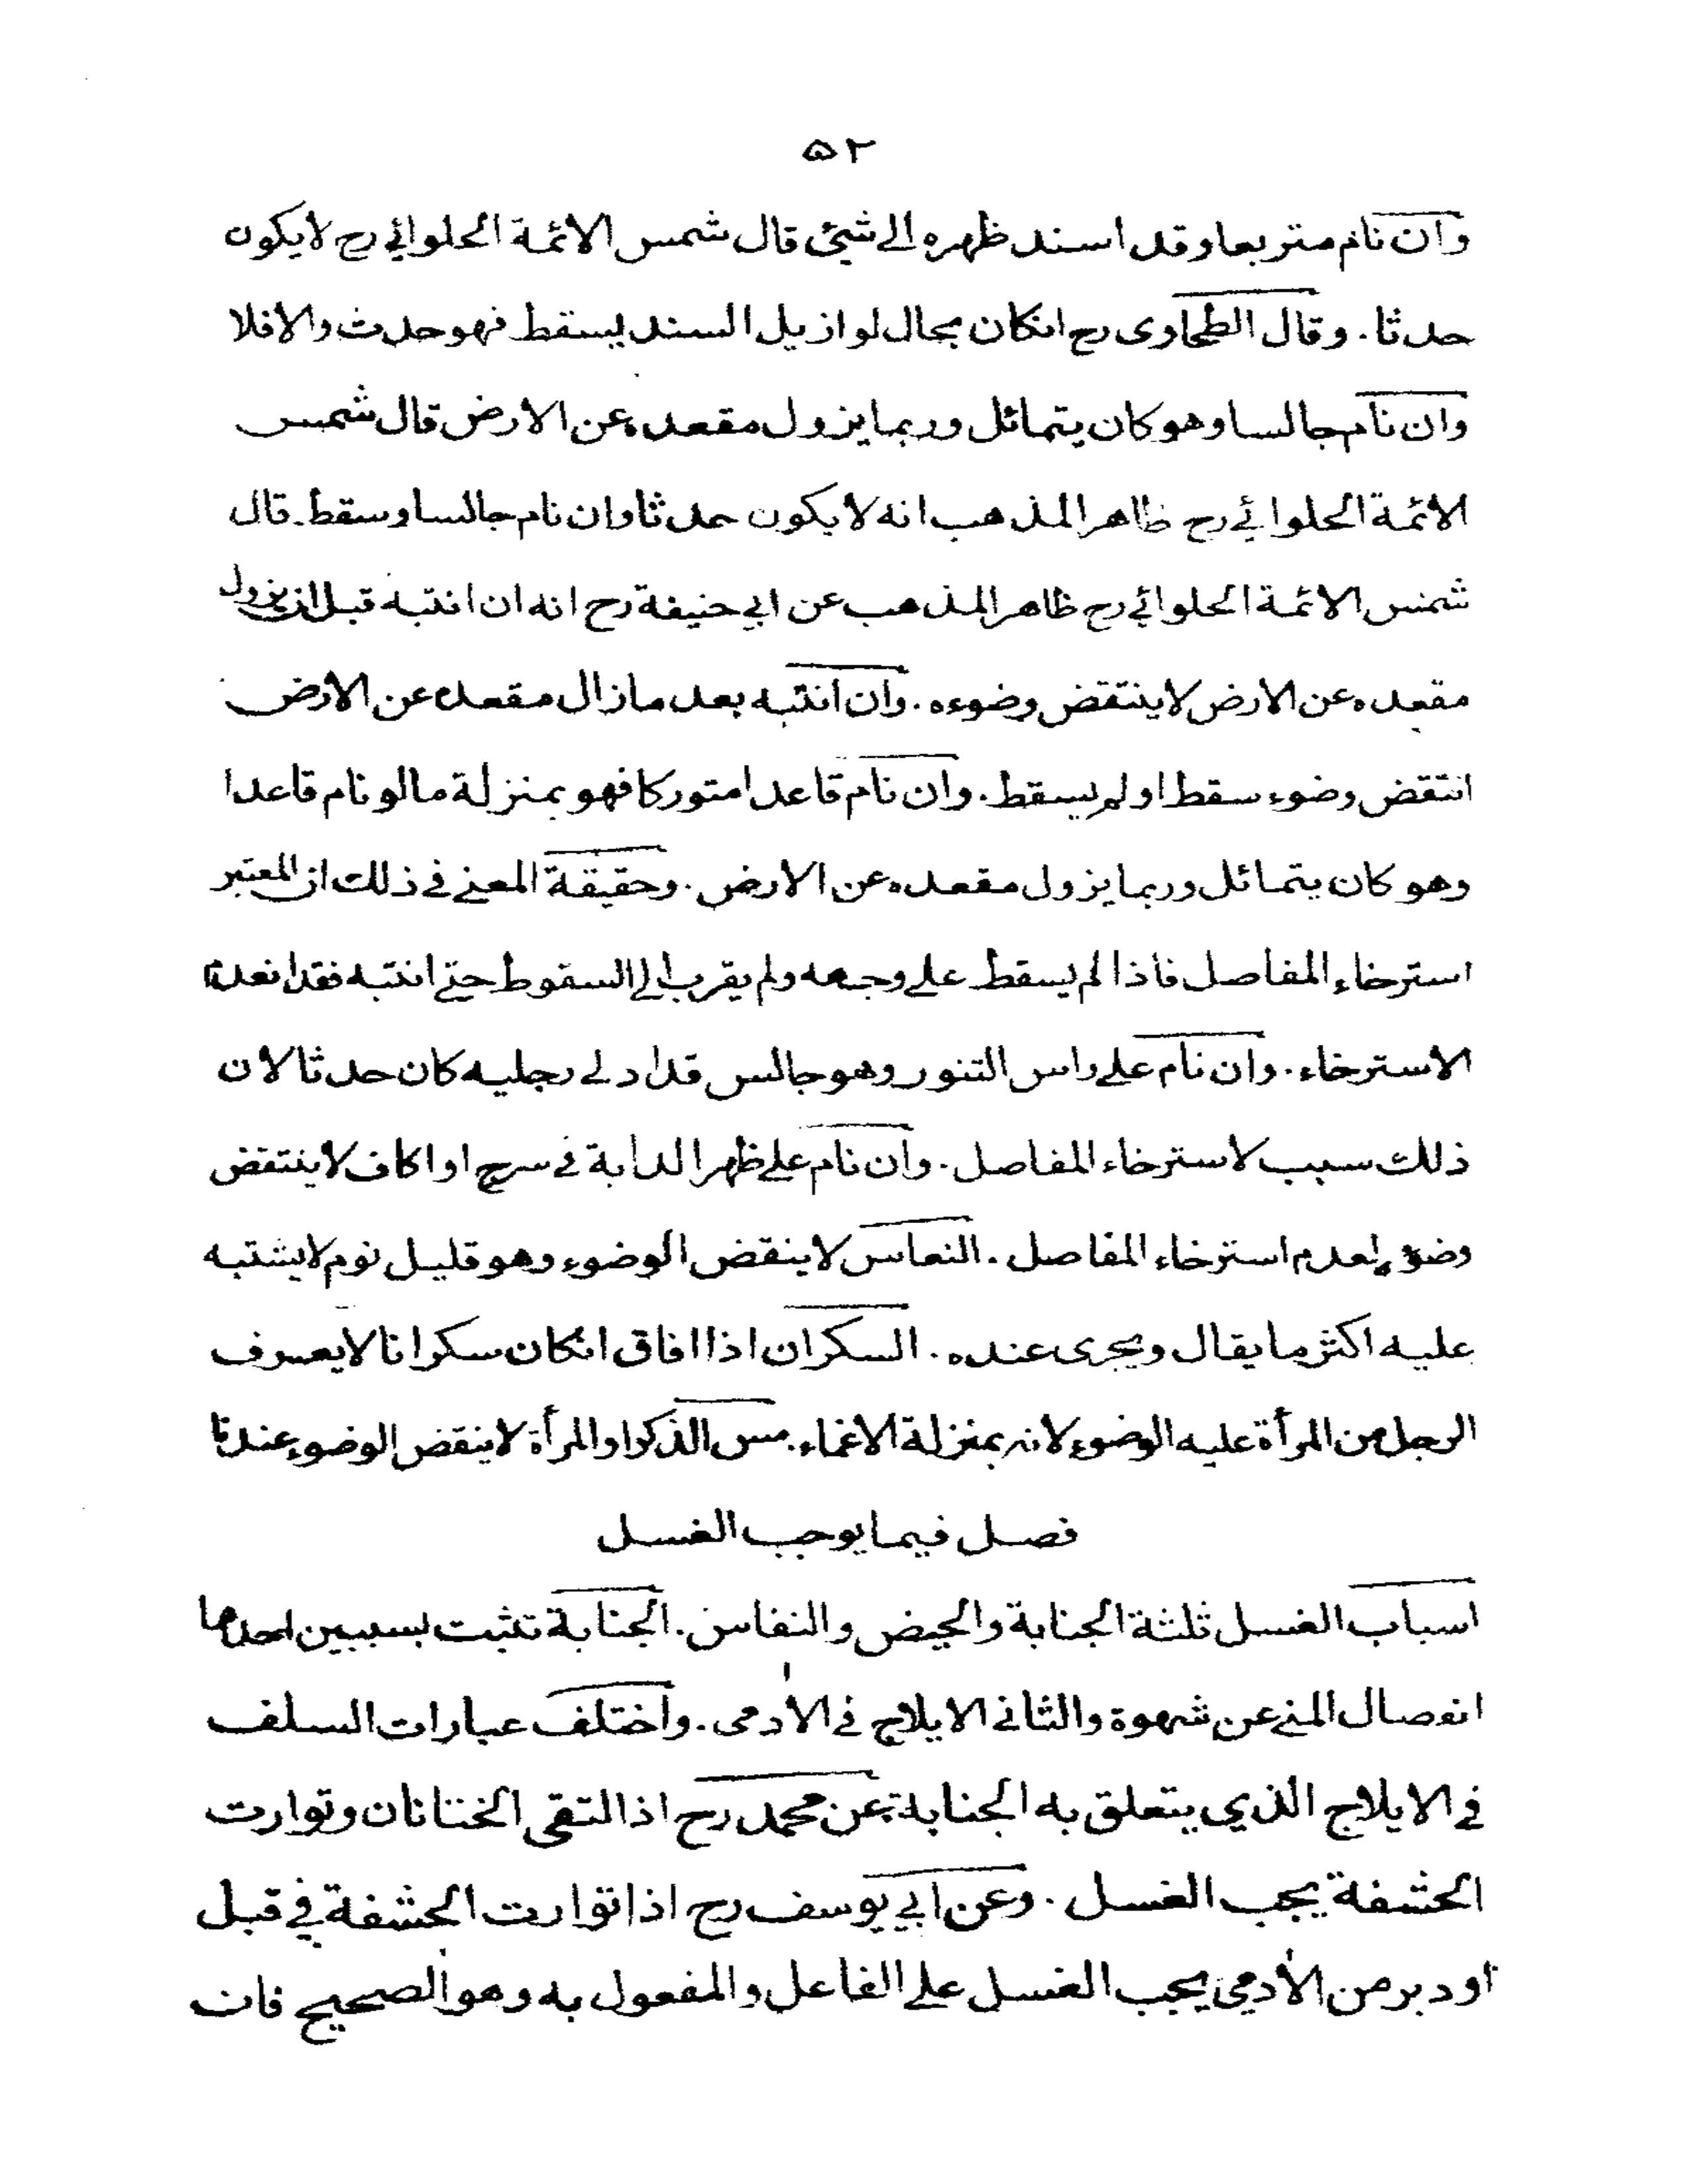 ۵۲
وان نام متربعا وقد اسند ظهره الى شيئ قال شمس الائمة الحلوائي رح لا يكون
حدثا. وقال الطحاوى رح انكان بحال لو ازيل السند يسقط فهو حدث والا فلا
وان نام جالسا وهو كان يتمائل وربما يزول مقعده عن الارض قال شمس
الائمة الحلوائي رح ظاهر المذهب انه لا يكون حدثا وان نام جالسا وسقط. قال
شمس الائمة الحلوائي رح ظاهر المذهب عن ابي حنيفة رح انه ان انتبه قبل ان يزول
مقعده عن الارض لا ينتقض وضوءه. وان انتبه بعد ما زال مقعده عن الارض
انتقض وضوء سقط او لم يسقط. وان نام قاعدا متوركا فهو بمنزلة ما لو نام قاعدا
وهو كان يتمائل وربما يزول مقعده عن الارض. وحقيقة المعنى في ذلك ان المعتبر
استرخاء المفاصل فاذا لم يسقط على وجهه ولم يقرب الى السقوط حتى انتبه فقد انعدم
الاسترخاء. وان نام على راس التنور وهو جالس قد ادلى رجليه كان حدثا لان
ذلك سبب لاسترخاء المفاصل. وان نام على ظهر الدابة في سرج او اكاف لا ينتقض
وضوءه لعدم استرخاء المفاصل. النعاس لا ينقض الوضوء وهو قليل نوم لا يشتبه
عليه اكثر ما يقال ويجرى عنده. السكران اذا افاق انكان سكرانا لا يعرف
الرجل من المرأة عليه الوضوء لانه بمنزلة الاغماء. مس الذكر او المرأة لا ينقض الوضوء عندنا
فصل فيما يوجب الغسل
اسباب الغسل ثلثة الجنابة والحيض والنفاس. الجنابة تثبت بسببين احدهما
انفصال المني عن شهوة والثاني الايلاج في الآدمى. واختلف عبارات السلف
في الايلاج الذي يتعلق به الجنابة عن محمد رح اذا التقى الختانان وتوارت
الحشفة يجب الغسل. وعن ابي يوسف رح اذا توارت الحشفة في قبل
او دبر من الآدمي يجب الغسل على الفاعل والمفعول به وهو الصحيح فان